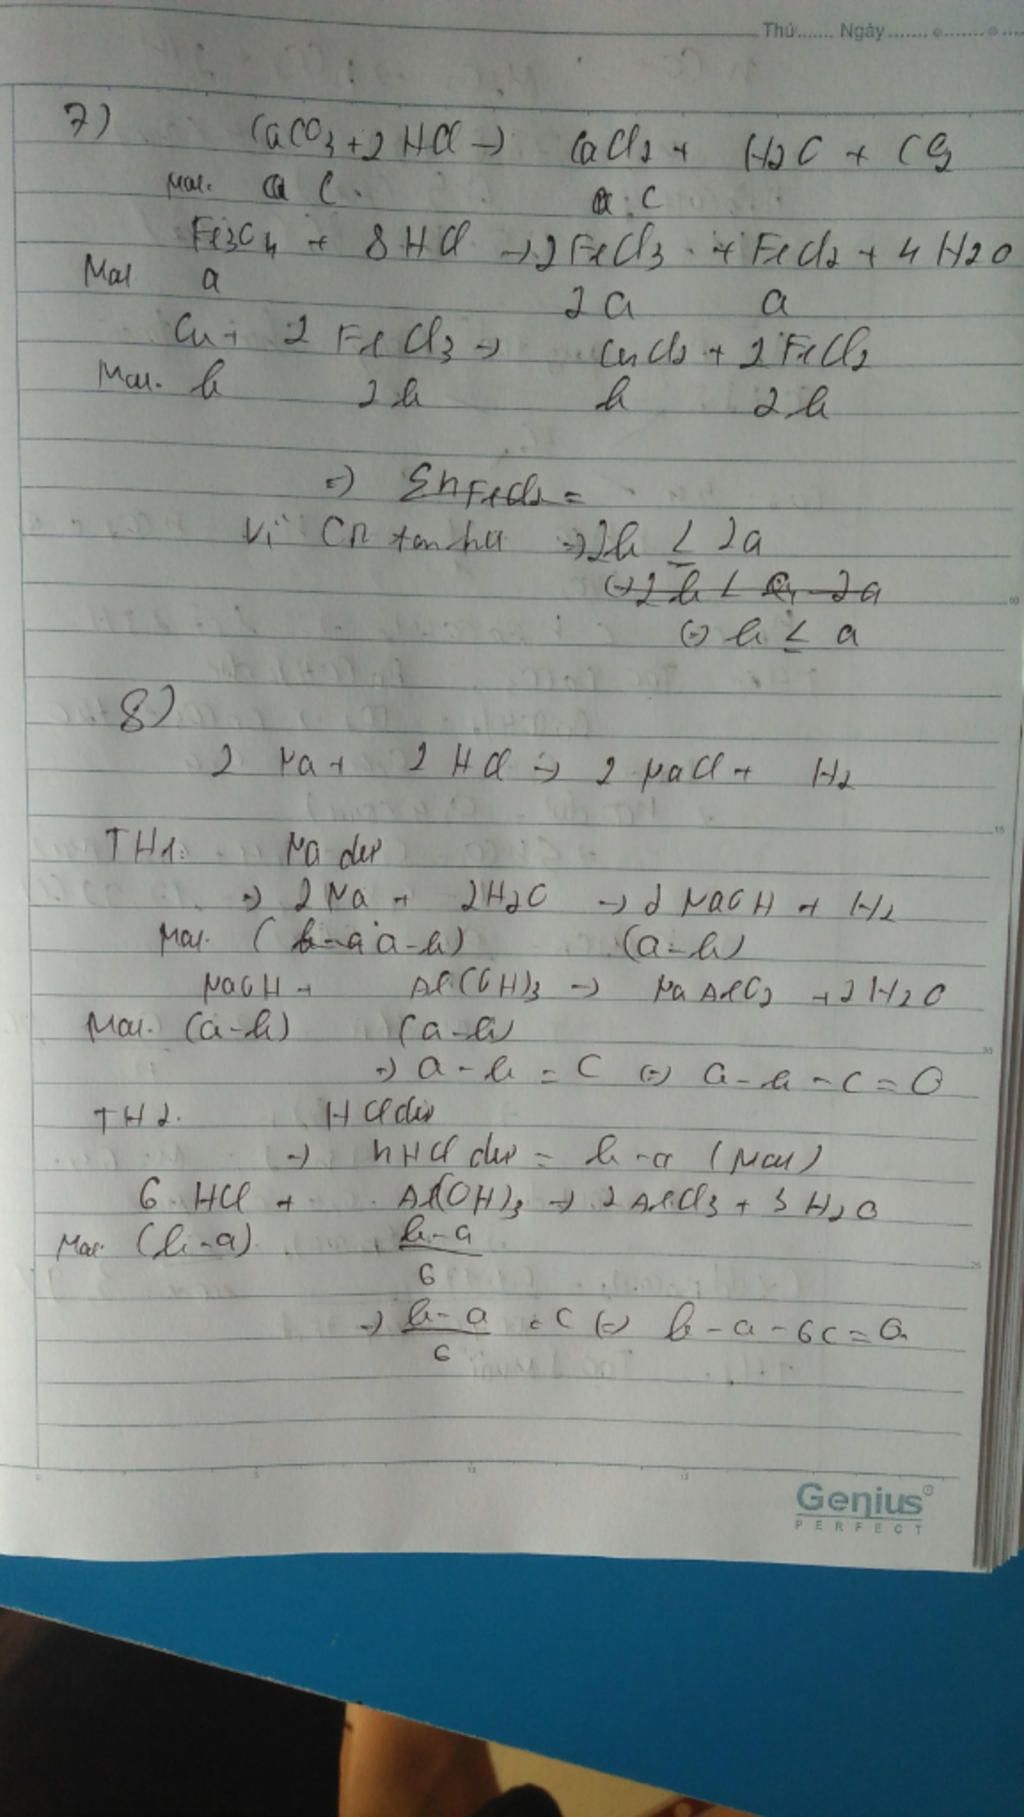 Thứ....... Ngày.......
7) CaCO3 + 2 HCl → CaCl2 + H2O + CO2
Mol. C. C
Fe3O4 + 8 HCl → 2 FeCl3 + FeCl2 + 4 H2O
Mol a 2a a
Cu + 2 FeCl3 → CuCl2 + 2 FeCl2
Mol. b 2b b 2b
=) ΣnFeCl2 =
Vì CR tan hết =) 2b ≤ 2a
(=) b ≤ a
8)
2 Na + 2 HCl → 2 NaCl + H2
TH1: Na dư
=) 2 Na + 2H2O → 2 NaOH + H2
Mol. (a-b) (a-b)
NaOH + Al(OH)3 → NaAlO2 + 2 H2O
Mol. (a-b) (a-b)
=) a - b = C (=) a - b - c = 0
TH2. HCl dư
=) nHCl dư = b - a (mol)
6 HCl + Al(OH)3 → 2 AlCl3 + 3 H2O
Mol. (b-a) b-a/6
=) b-a/6 = C (=) b - a - 6c = 0
Genius
PERFECT